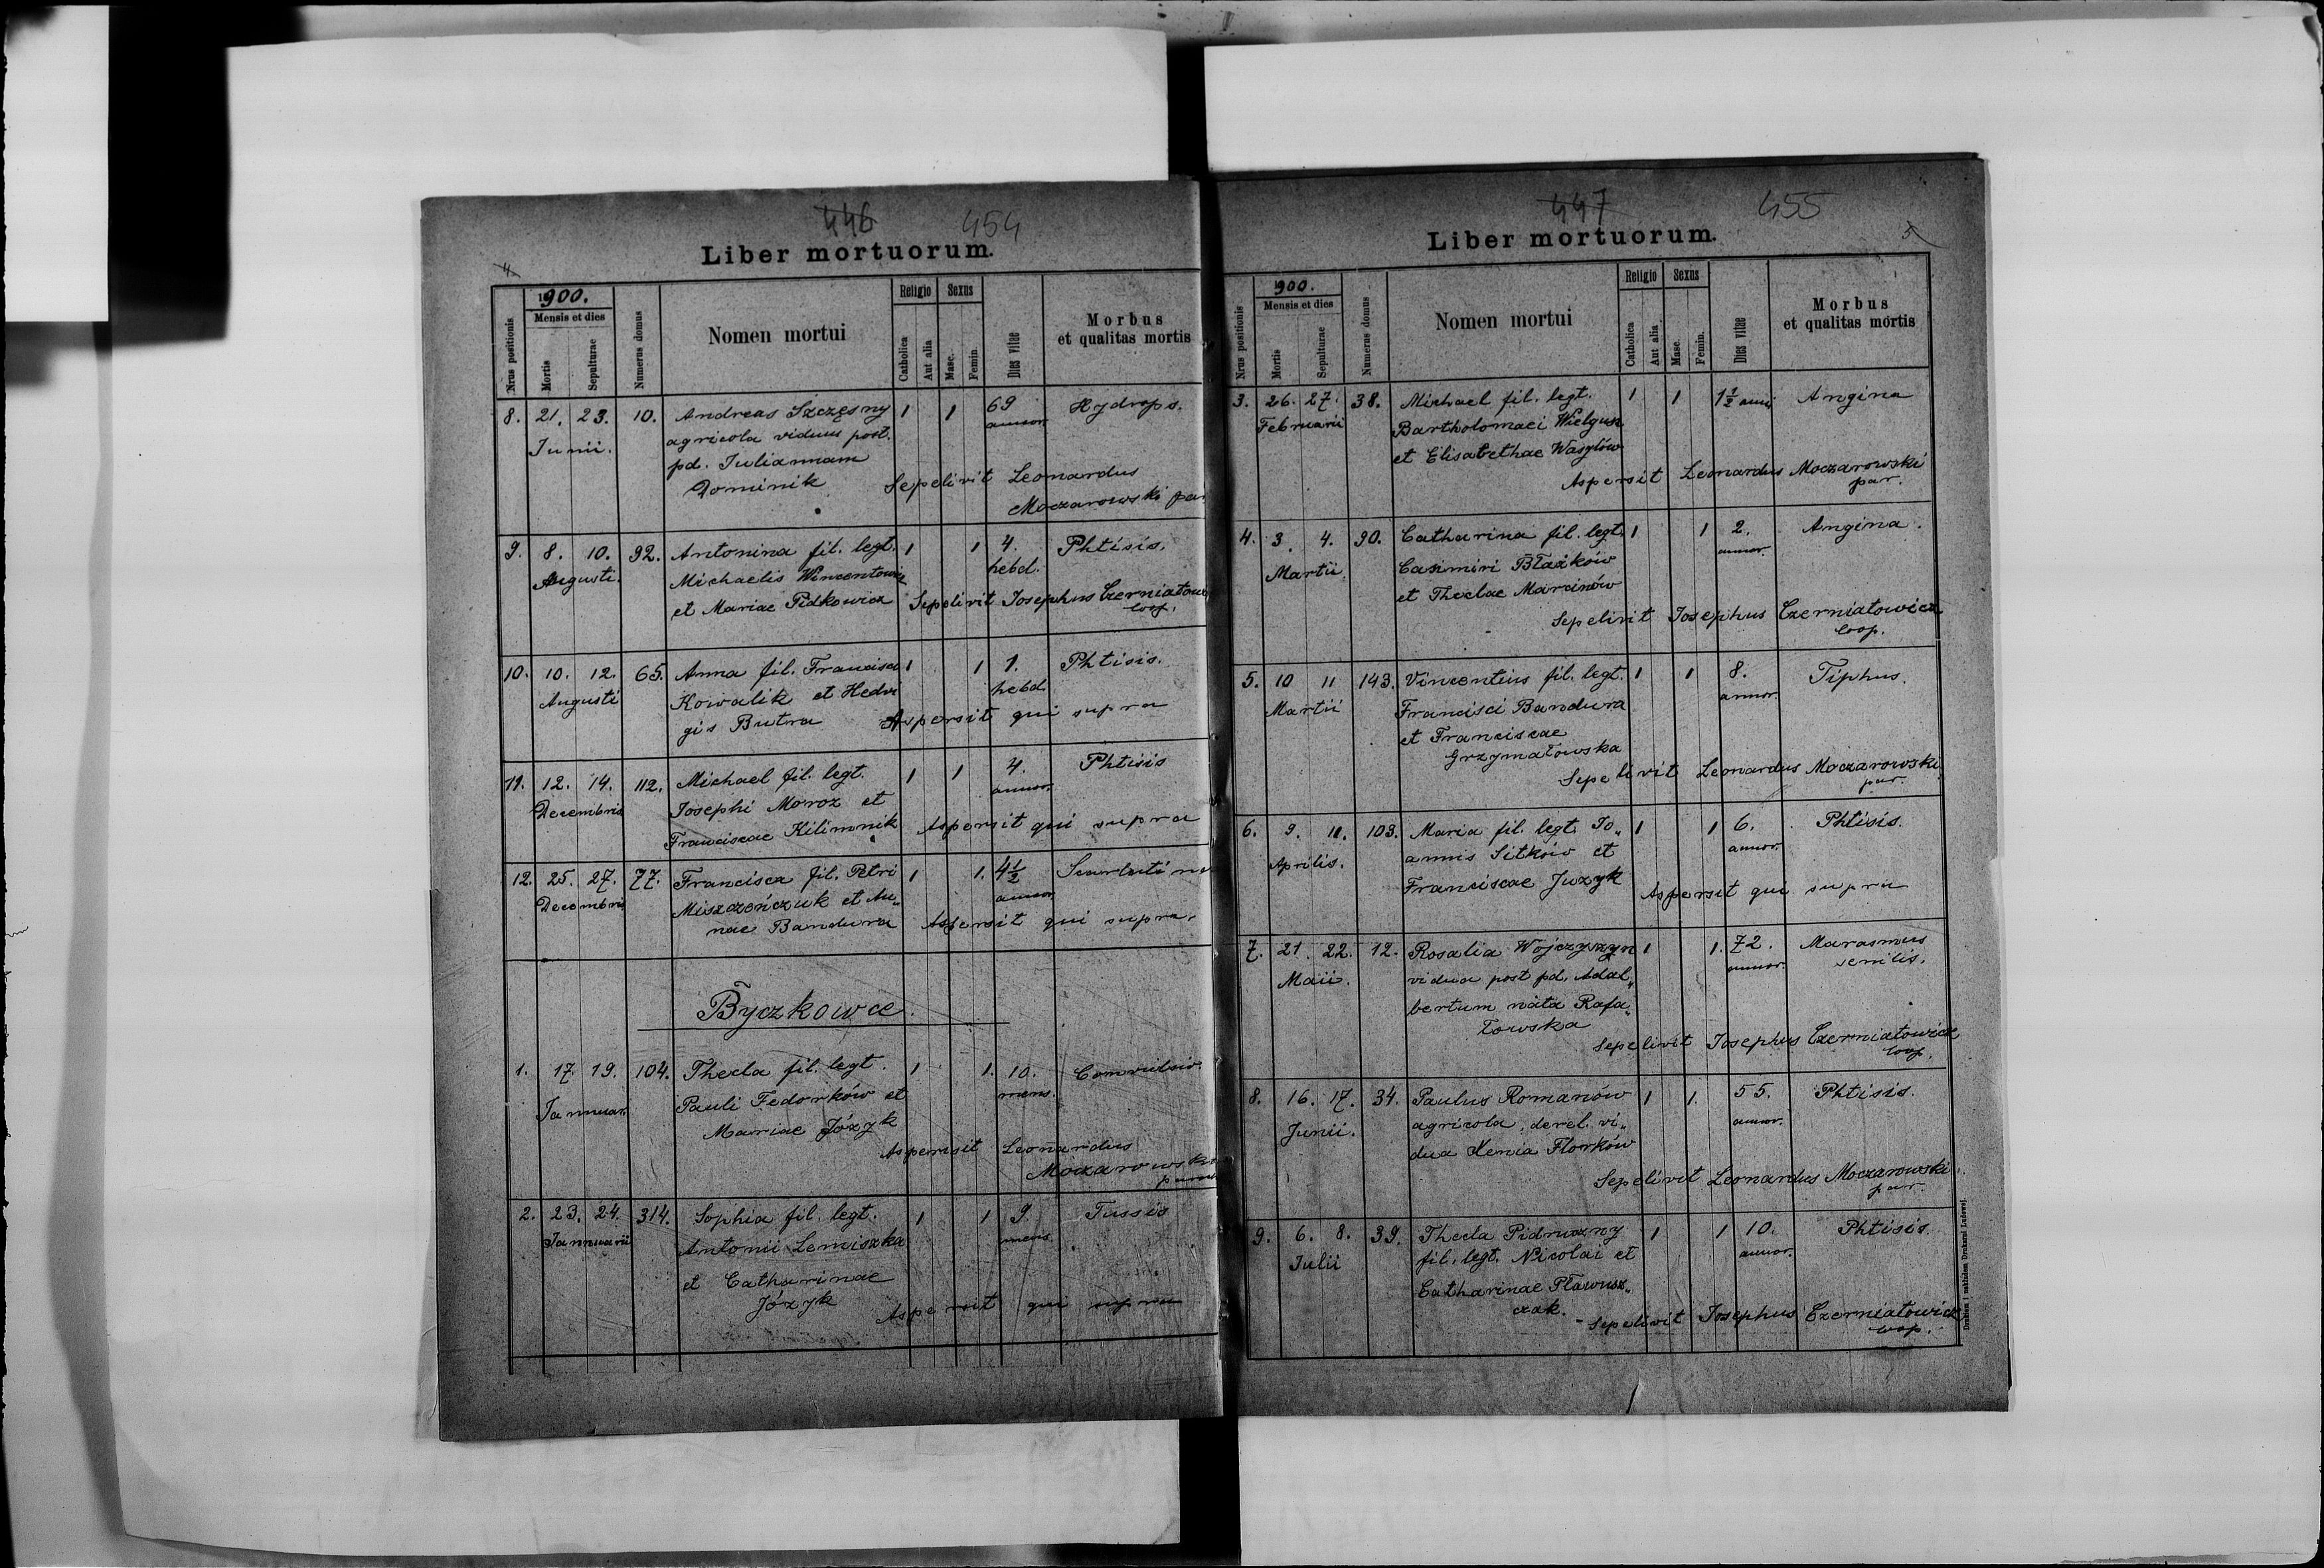 446 454
Liber mortuorum.
4
Nrus positionis
1900.
Mensis et dies
Mortis
Sepulturae
Numerus domus
Nomen mortui
Religio
Catholica
Aut alia
Sexus
Masc.
Femin.
Dies vitae
Morbus
et qualitas mortis
8. 21. 23. 10. Andreas Szczęsny 1 1 69 Hydrops.
Junii. agricola viduus post. annor.
pd. Juliannam
Dominik Sepelivit Leonardus
Moczarowski par
9. 8. 10. 92. Antonina fil. legt. 1 1 4. Phtisis.
Augusti. Michaelis Wincentowicz hebd.
et Mariae Pidkowicz Sepelivit Josephus Czerniatowi
Coop.
10. 10. 12. 65. Anna fil. Francisci 1 1 1. Phtisis.
Augusti Kowalik et Hedvi hebd.
gis Butra Aspersit qui supra
11. 12. 14. 112. Michael fil. legt. 1 1 4. Phtisis
Decembris Josephi Moroz et annor.
Franciscae Kilimnik Aspersit qui supra
12. 25. 27. 77. Francisca fil. Petri 1 1. 4½ Scarlatina
Decembris Miszczończuk et An„ annor.
nae Bandura Aspersit qui supra.
Byczkowce.
1. 17. 19. 104. Thecla fil. legt. 1 1. 10. Convulsio.
Januar. Pauli Fedorków et mens.
Mariae Józyk
Aspersit Leonardus
Moczarowski
paroch
2. 23. 24. 314. Sophia fil. legt. 1 1 9. Tussis
Januarii Antonii Lemiszka mens.
et Catharinae
Józyk
Aspersit qui supra
447 455
Liber mortuorum.
5
Nrus positionis
1900.
Mensis et dies
Mortis
Sepulturae
Numerus domus
Nomen mortui
Religio
Catholica
Aut alia
Sexus
Masc.
Femin.
Dies vitae
Morbus
et qualitas mortis
3. 26. 27. 38. Michael fil. legt. 1 1 1½ anni Angina
Februarii Bartholomaei Wielgusz
et Elisabethae Wasylów
Aspersit Leonardus Moczarowski
par.
4. 3. 4. 90. Catharina fil. legt. 1 1 2. Angina.
Martii. Casimiri Błażków annor.
et Theclae Marcinów
Sepelivit Josephus Czerniatowicz
Coop.
5. 10 11 143. Vincentius fil. legt. 1 1 8. Tiphus.
Martii Francisci Bandura annor.
et Franciscae
Grzymałowska
Sepelivit Leonardus Moczarowski
par.
6. 9. 11. 103. Maria fil. legt. Jo„ 1 1 6. Phtisis.
Aprilis. annis Sitków et annor.
Franciscae Juzyk
Aspersit qui supra
7. 21. 22. 12. Rosalia Wojczyszyn 1 1. 72. Marasmus
Maii. vidua post pd. Adal„ annor. senilis.
bertum nata Rafa„
łowska
Sepelivit Josephus Czerniatowicz
Coop.
8. 16. 17. 34. Paulus Romanów 1 1. 55. Phtisis.
Junii. agricola, derel. vi„ annor.
dua Xenia Florków
Sepelivit Leonardus Moczarowski
par.
9. 6. 8. 39. Thecla Pidruzny 1 1 10. Phtisis.
Julii fil. legt. Nicolai et annor.
Catharinae Pławusz„
czak.
Sepelivit Josephus Czerniatowicz
Coop.
Drukiem i nakładem Drukarni Ludowej.